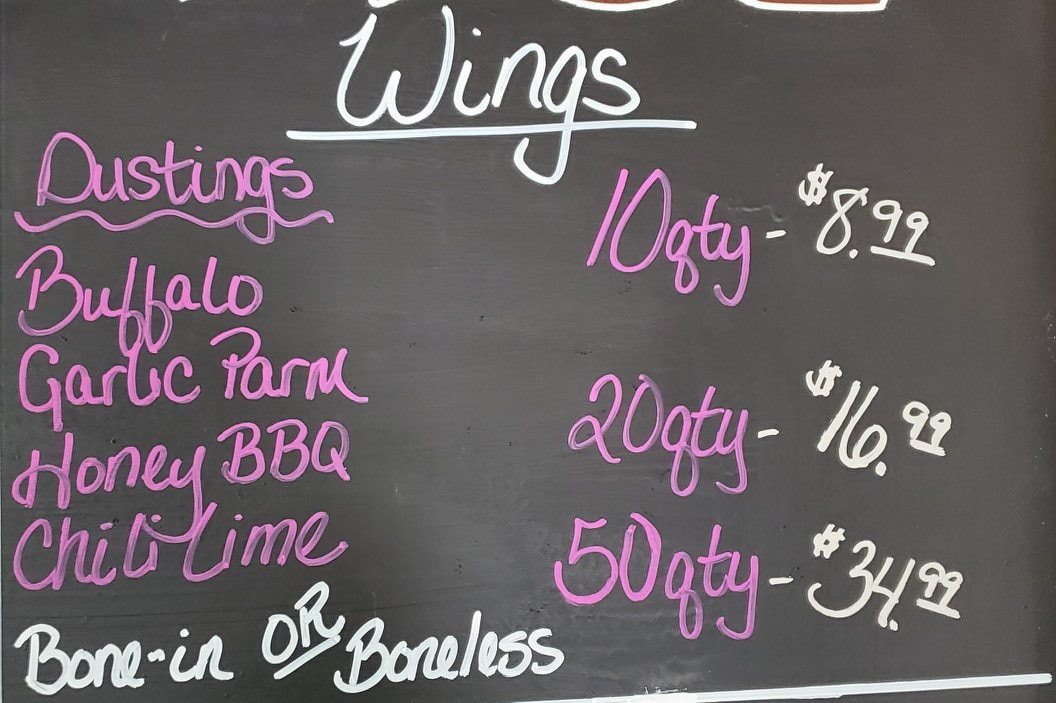 Wings
Dustings
Buffalo
Garlic Parm
Honey BBQ
Chili Lime
Bone-in OR Boneless
10qty - $8.99
20qty - $16.99
50qty - $34.99